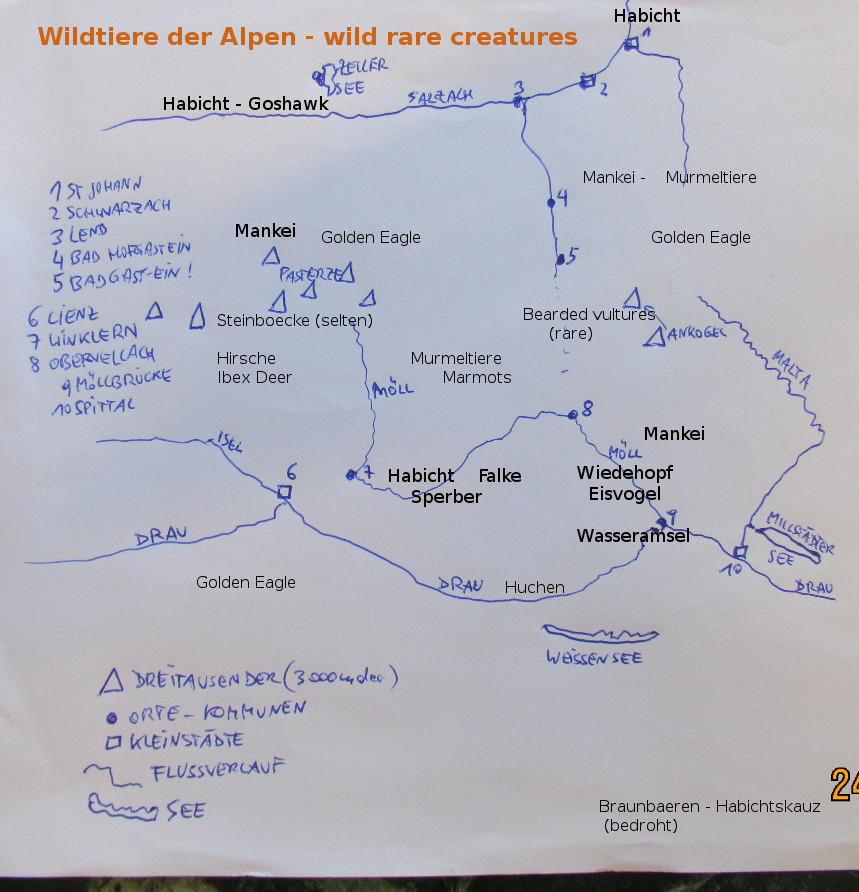 Habicht
Wildtiere der Alpen - wild rare creatures
1
ZELLER
SEE
2
Habicht - Goshawk
SALZACH
3
Mankei -
Murmeltiere
1 ST JOHANN
2 SCHWARZACH
3 LEND
4 BAD HOFGASTEIN
5 BADGAST-EIN!
4
Mankei
Golden Eagle
Golden Eagle
5
PASTERZE
6 LIENZ
7 WINKLERN
8 OBERVELLACH
9 MÖLLBRÜCKE
10 SPITTAL
Steinboecke (selten)
Bearded vultures
(rare)
ANKOGEL
Hirsche
Ibex Deer
Murmeltiere
Marmots
MALTA
MÖLL
8
ISEL
Mankei
MÖLL
6
7
Habicht
Falke
Sperber
Wiedehopf
Eisvogel
9
Wasseramsel
MILLSTÄDTER
SEE
10
DRAU
DRAU
Golden Eagle
DRAU
Huchen
WEISSENSEE
DREITAUSENDER (3000
ORTE - KOMMUNEN
KLEINSTÄDTE
FLUSSVERLAUF
SEE
24
Braunbaeren - Habichtskauz
(bedroht)